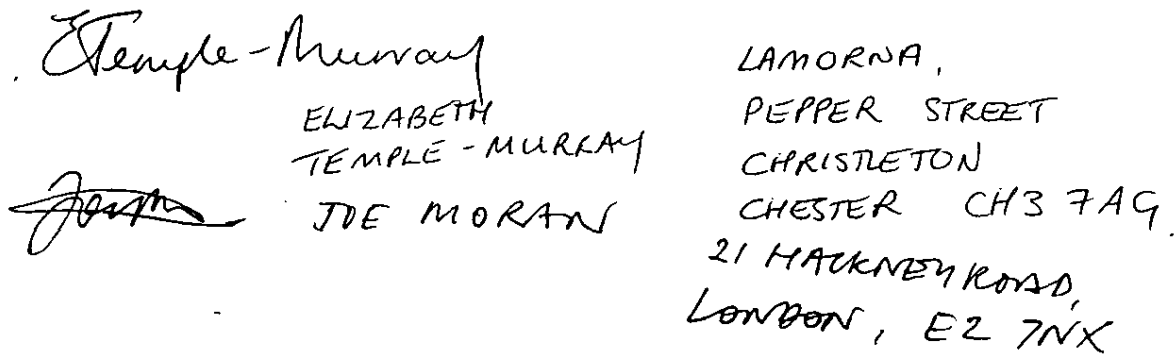 ETemple-Murray
ELIZABETH
TEMPLE-MURRAY
LAMORNA,
PEPPER STREET
CHRISTLETON
CHESTER CH3 7AG.
JOE MORAN
21 HACKNEY ROAD,
LONDON, E2 7NX